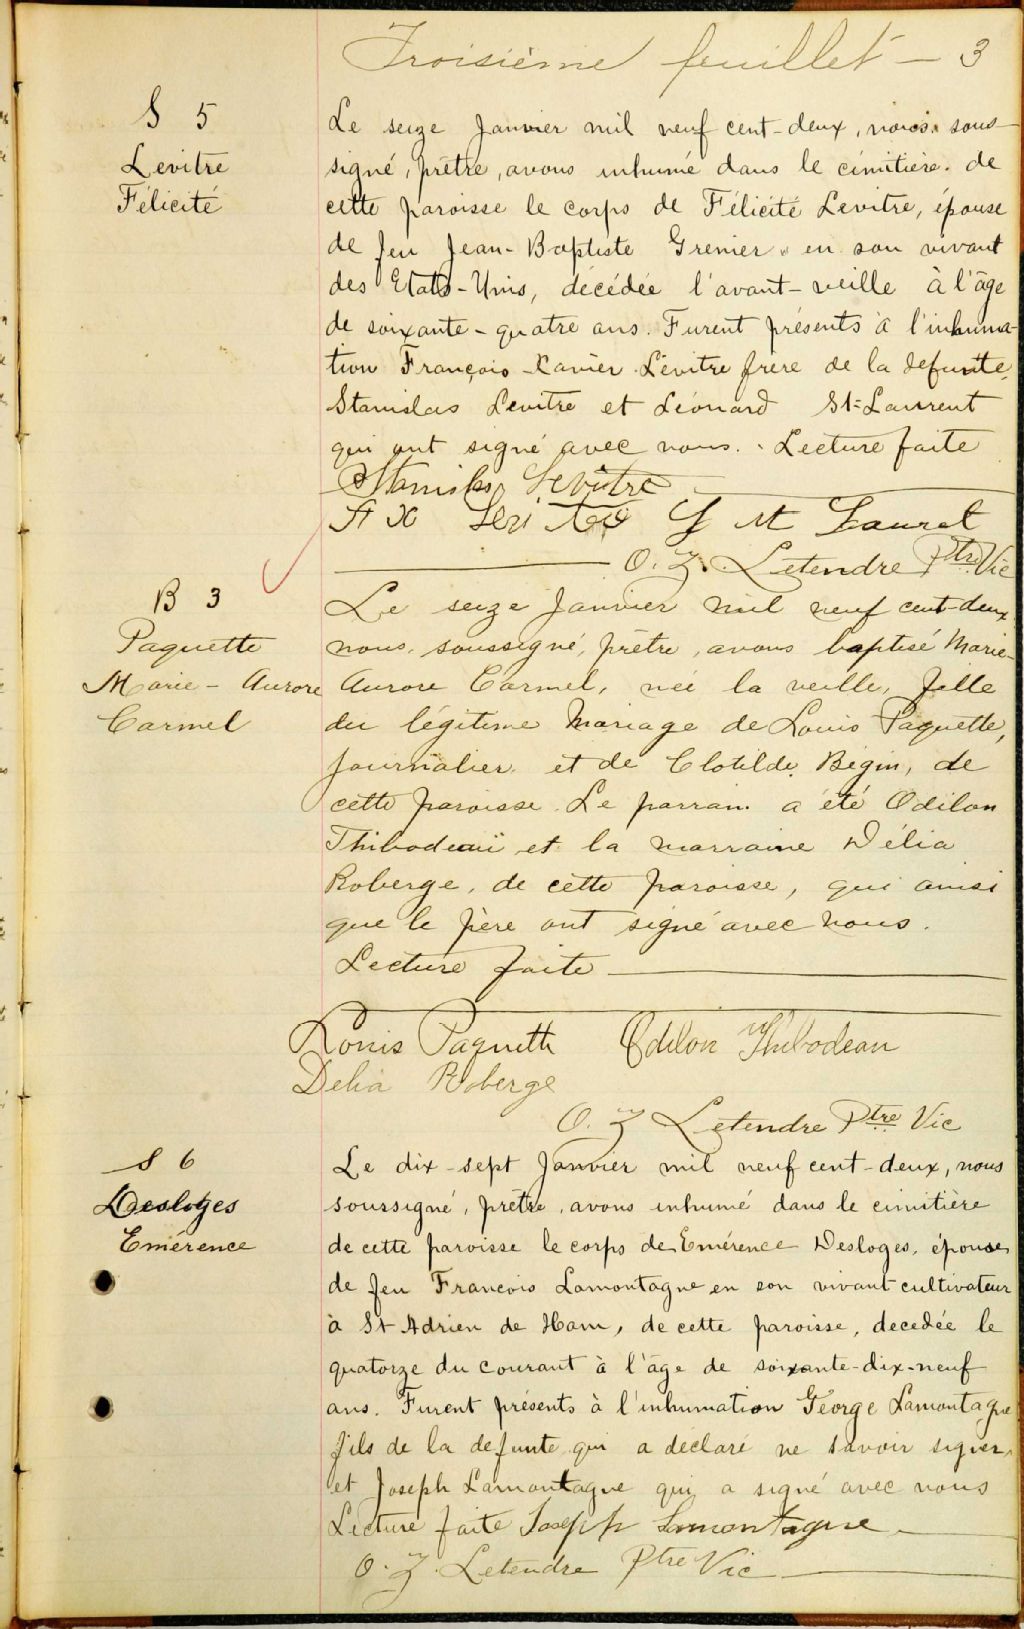 Troisième feuillet — 3
S 5
Levitre
Félicité
Le seize Janvier mil neuf cent-deux, nous sous-
signé, prêtre, avons inhumé dans le cimitière de
cette paroisse le corps de Félicité Levitre, épouse
de feu Jean-Baptiste Grenier en son vivant
des Etats-Unis, décédée l'avant-veille à l'âge
de soixante-quatre ans. Furent présents à l'inhuma-
tion François-Xavier Lévitre frère de la defunte,
Stanislas Levitre et Léonard St-Laurent
qui ont signé avec nous. Lecture faite
Stanislas Levitre
F X Levitre L St Lauret
O. Z. Letendre Ptre Vic
B 3
Paquette
Marie-Aurore
Carmel
Le seize Janvier mil neuf cent-deux
nous, soussigné, prêtre, avons baptisé Marie-
Aurore Carmel, née la veille, fille
du légitime Mariage de Louis Paquette,
journalier et de Clotilde Bégin, de
cette paroisse. Le parrain a été Odilon
Thibodeau et la marraine Délia
Roberge, de cette paroisse, qui ainsi
que le père ont signé avec nous.
Lecture faite
Louis Paquette Odilon Thibodeau
Delia Roberge
O. Z Letendre Ptre Vic
S 6
Desloges
Emérence
Le dix-sept Janvier mil neuf cent-deux, nous
soussigné, prêtre, avons inhumé dans le cimitière
de cette paroisse le corps de Emérence Desloges, épouse
de feu François Lamontagne en son vivant cultivateur
à St Adrien de Ham, de cette paroisse, decedée le
quatorze du courant à l'âge de soixante-dix-neuf
ans. Furent présents à l'inhumation George Lamontagne
fils de la defunte qui a declaré ne savoir signer,
et Joseph Lamontagne qui a signé avec nous
Lecture faite Joseph Lamontagne
O. Z. Letendre Ptre Vic